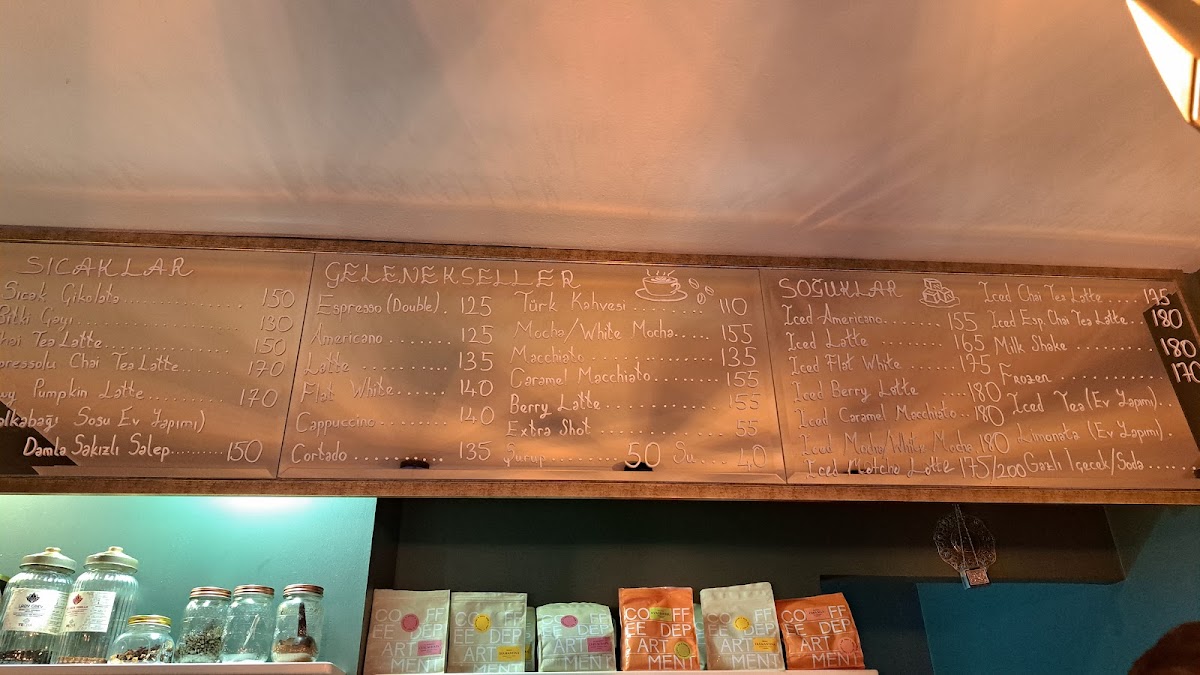 SICAKLAR
Sıcak Çikolata 150
Bitki Çayı 130
Chai Tea Latte 150
Espressolu Chai Tea Latte 170
Pumpkin Latte 170
Balkabağı Sosu Ev Yapımı)
Damla Sakızlı Salep 150
GELENEKSELLER
Espresso (Double) 125
Americano 125
Latte 135
Flat White 140
Cappuccino 140
Cortado 135
Türk Kahvesi 110
Mocha/White Mocha 155
Macchiato 135
Caramel Macchiato 155
Berry Latte 155
Extra Shot 55
Şurup 50 Su 40
SOĞUKLAR
Iced Americano 155
Iced Latte 165
Iced Flat White 175
Iced Berry Latte 180
Iced Caramel Macchiato 180
Iced Mocha/White Mocha 180
Iced Matcha Latte 175/200
Iced Chai Tea Latte 175
Iced Esp. Chai Tea Latte 180
Milk Shake 180
Frozen 170
Iced Tea (Ev Yapımı)
Limonata (Ev Yapımı)
Gazlı İçecek/Soda
COFF
EE DEP
ART
MENT
COFF
EE DEP
ART
MENT
COFF
EE DEP
ART
MENT
COFF
EE DEP
ART
MENT
COFF
EE DEP
ART
MENT
COFF
EE DEP
ART
MENT